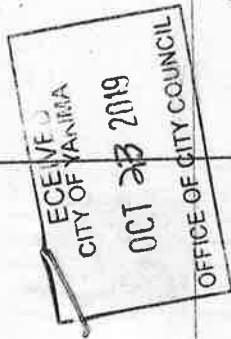 ECEIVED
CITY OF YAKIMA
OCT 23 2019
OFFICE OF CITY COUNCIL